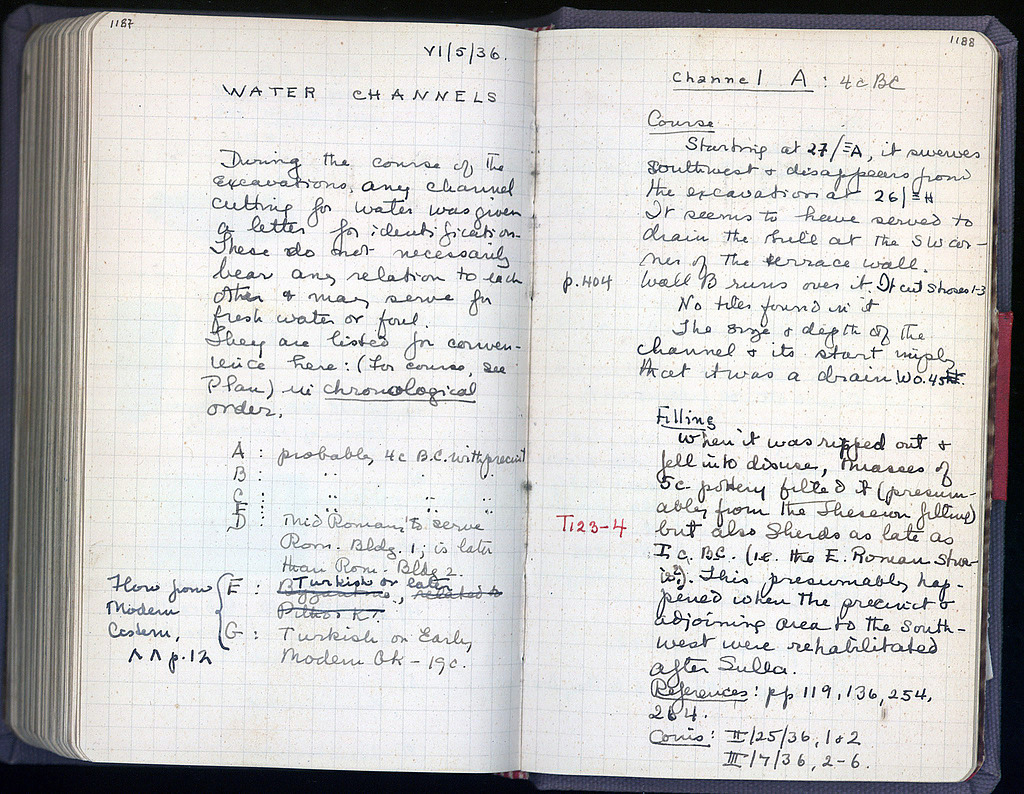 1187
VI/5/36.
WATER CHANNELS
During the course of the
excavations, any channel
cutting for water was given
a letter for identification.
These do not necessarily
bear any relation to each
other & may serve for
fresh water or foul.
They are listed for conven-
ience here: (For course, see
Plan) in chronological
order.
A : probably 4c B.C. with precinct
B : " " "
C : " " "
F :
D : Mid Roman, to serve
Rom. Bldg. 1; is later
than Rom. Bldg 2.
Flow from
Modern
Cistern,
ΛΛ p.12
E : Turkish or late
Byzantine, related to
Pithos
G : Turkish or Early
Modern Gk – 19c.
1188
Channel A : 4c BC
Course
Starting at 27/ΞA, it swerves
southwest & disappears from
the excavation at 26/ΞH
It seems to have served to
drain the hill at the SW cor-
ner of the terrace wall.
p.404
Wall B runs over it. It cut Shoses 1-3
No tiles found in it
The size & depth of the
channel & its start imply
that it was a drain W0.45
Filling
When it was ripped out &
fell into disuse, masses of
5c. pottery filled it (presum-
ably from the Theseion filling)
T123-4
but also Sherds as late as
I c. B.C. (i.e. the E. Roman
This presumably hap-
pened when the precinct &
adjoining area to the South-
west were rehabilitated
after Sulla.
References: pp 119, 136, 254,
264.
Coins: II/25/36, 1 & 2
III/7/36, 2-6.